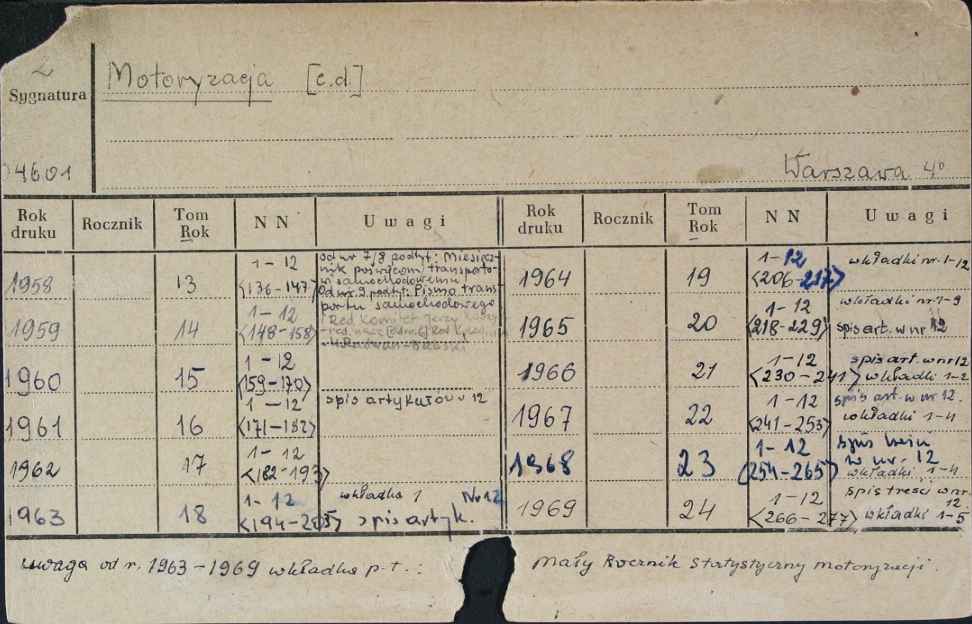 2
Motoryzacja [c.d.]
Sygnatura
4601
Warszawa 4°
Rok druku Rocznik Tom Rok NN Uwagi Rok druku Rocznik Tom Rok NN Uwagi
1958 13 1-12 <136-147>
od nr 7/8 podtyt: Miesięcz-
nik poświęcony transporto-
wi samochodowemu
Od nr. 9 podtyt: Pismo trans-
portu samochodowego
1959 14 1-12 <148-158>
Red Komitet Jerzy
1960 15 1-12 <159-170>
1961 16 1-12 <171-182> spis artykułów w 12
1962 17 1-12 <182-193>
1963 18 1-12 <194-205> wkładka 1 No 12
spis artyk.
1964 19 1-12 <206-217> wkładki nr. 1-12
1965 20 1-12 <218-229> wkładki nr 1-9
spis art. w nr 12
1966 21 1-12 <230-241> spis art. w nr 12
wkładki 1-2
1967 22 1-12 <241-253> spis art. w nr 12.
wkładki 1-4
1968 23 1-12 <254-265> spis
w nr. 12
wkładki 1-4
1969 24 1-12 <266-277> spis treści w nr
12.
wkładki 1-5
uwaga od r. 1963-1969 wkładka p.t.: Mały Rocznik Statystyczny Motoryzacji.